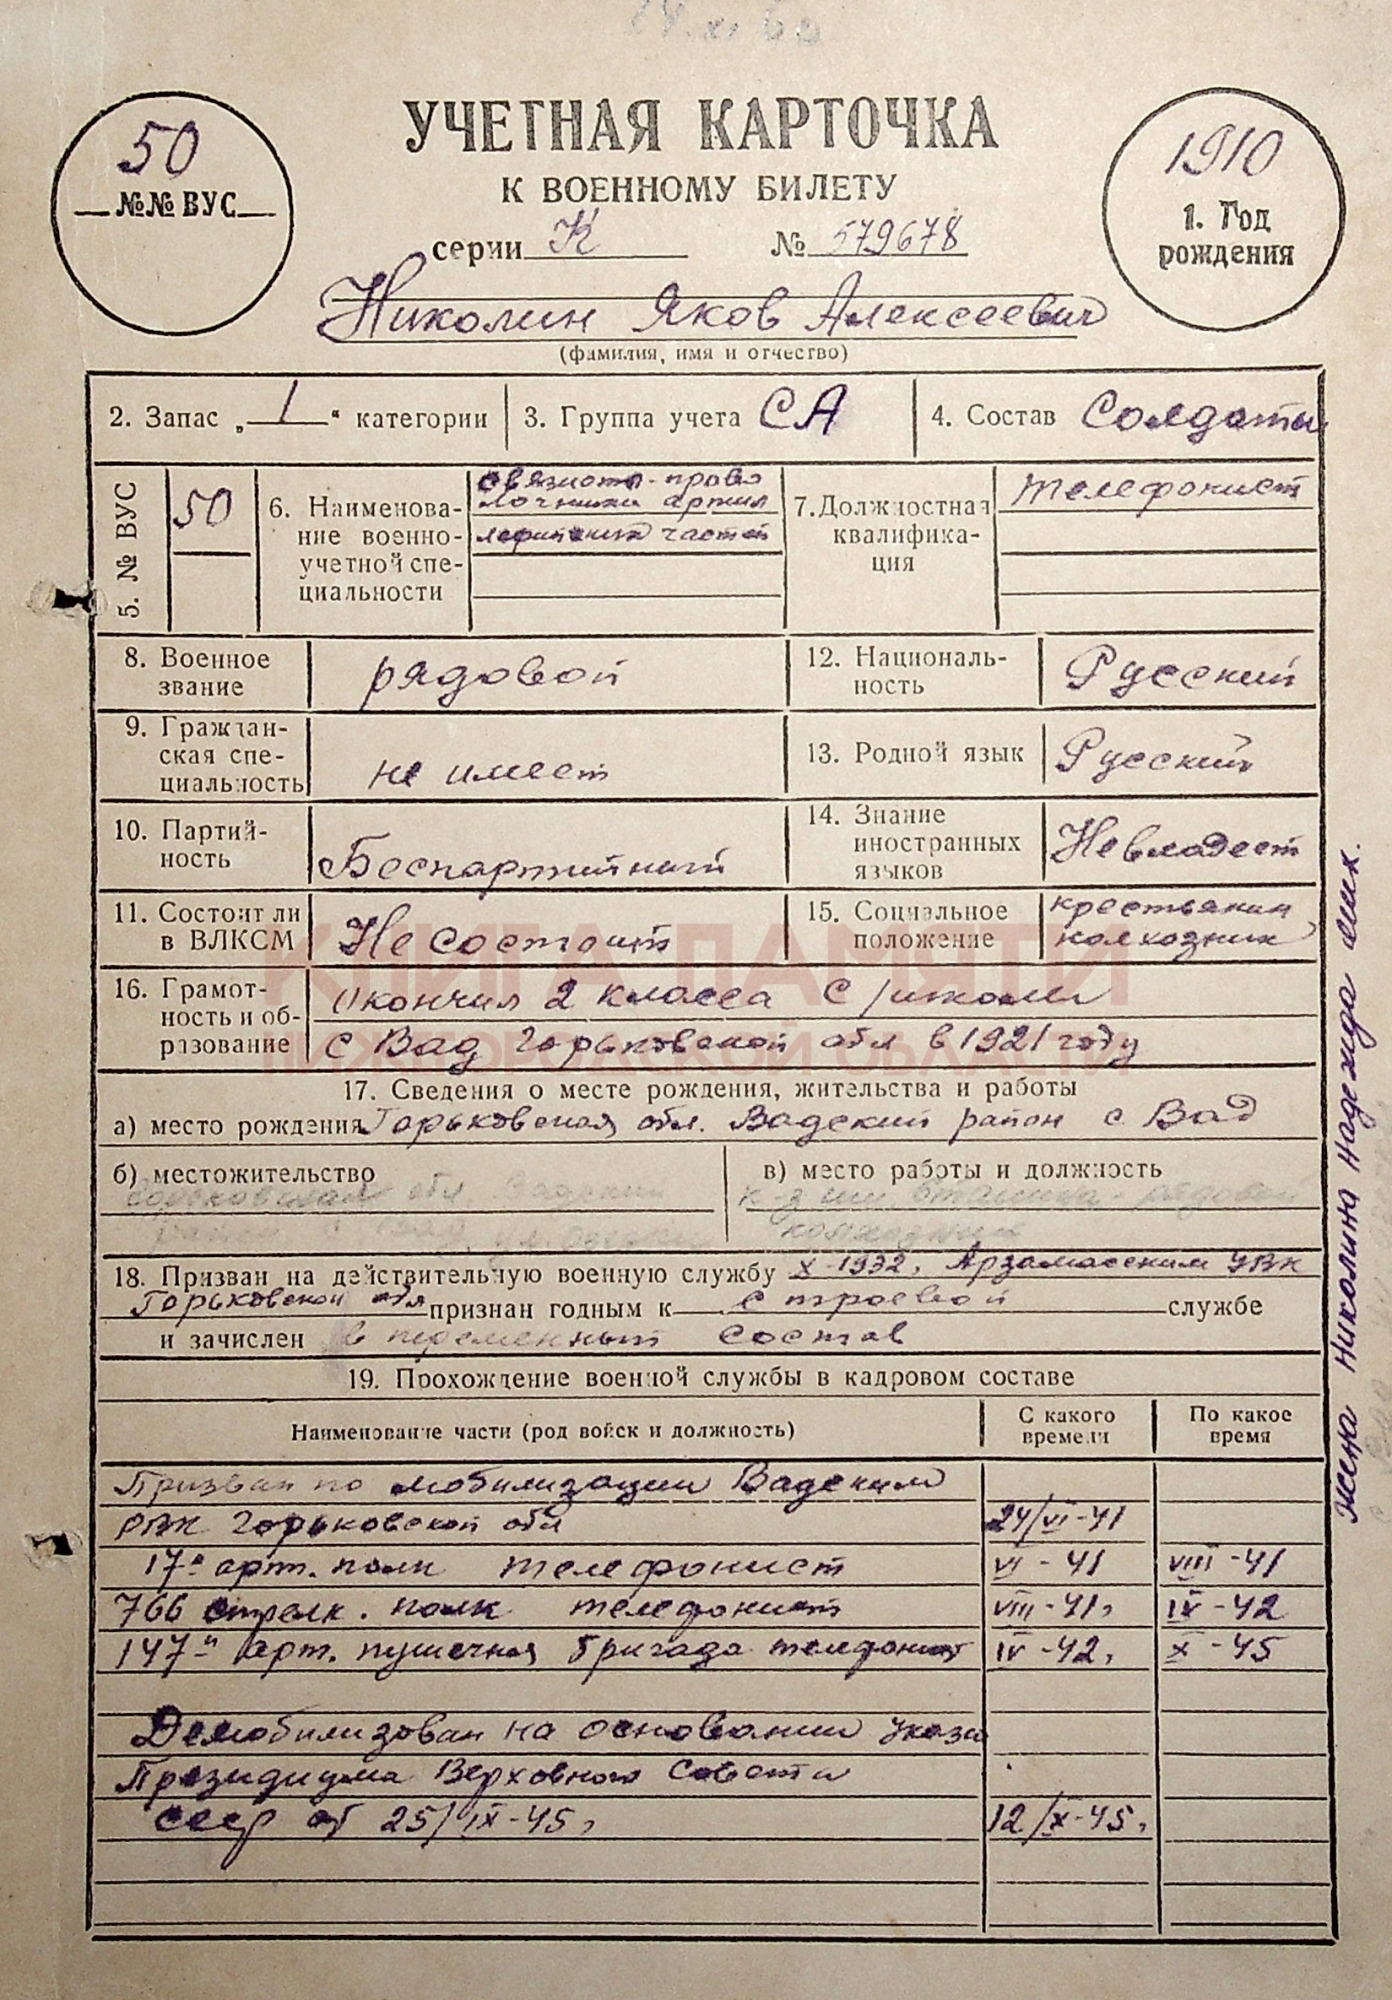 УЧЕТНАЯ КАРТОЧКА
К ВОЕННОМУ БИЛЕТУ
50
№№ ВУС
1910
1. Год
рождения
серии К № 579678
Николин Яков Алексеевич
(фамилия, имя и отчество)
2. Запас „ 1 “ категории
3. Группа учета СА
4. Состав Солдаты
5. № ВУС
50
6. Наименова-
ние военно-
учетной спе-
циальности
связисты-прово
лочники артил
лерийских частей
7. Должностная
квалифика-
ция
телефонист
8. Военное
звание
рядовой
12. Националь-
ность
Русский
9. Граждан-
ская спе-
циальность
не имеет
13. Родной язык
Русский
10. Партий-
ность
Беспартийный
14. Знание
иностранных
языков
Не владеет
11. Состоит ли
в ВЛКСМ
Не состоит
15. Социальное
положение
крестьянин
колхозник
КНИГА ПАМЯТИ
НИЖЕГОРОДСКОЙ ОБЛАСТИ
16. Грамот-
ность и об-
разование
Окончил 2 класса с/школы
с Вад Горьковской обл в 1921 году
17. Сведения о месте рождения, жительства и работы
а) место рождения Горьковская обл. Вадский район с Вад
б) местожительство
Горьковская обл Вадский
район с Вад, ул.
в) место работы и должность
к-з им. Сталина - рядовой
колхозник
18. Призван на действительную военную службу X-1932, Арзамасским УВК
Горьковской обл признан годным к строевой службе
и зачислен в переменный состав
19. Прохождение военной службы в кадровом составе
Наименование части (род войск и должность)
С какого
времени
По какое
время
Призван по мобилизации Вадским
РВК Горьковской обл 24/VI-41
17-й арт. полк телефонист VI-41 VIII-41
766 стрелк. полк телефонист VIII-41, IX-42
147-я арт. пушечная бригада телефонист IV-42, X-45
Демобилизован на основании указа
Президиума Верховного Совета
СССР от 25/IX-45, 12/X-45,
жена Николина Надежда Мих.